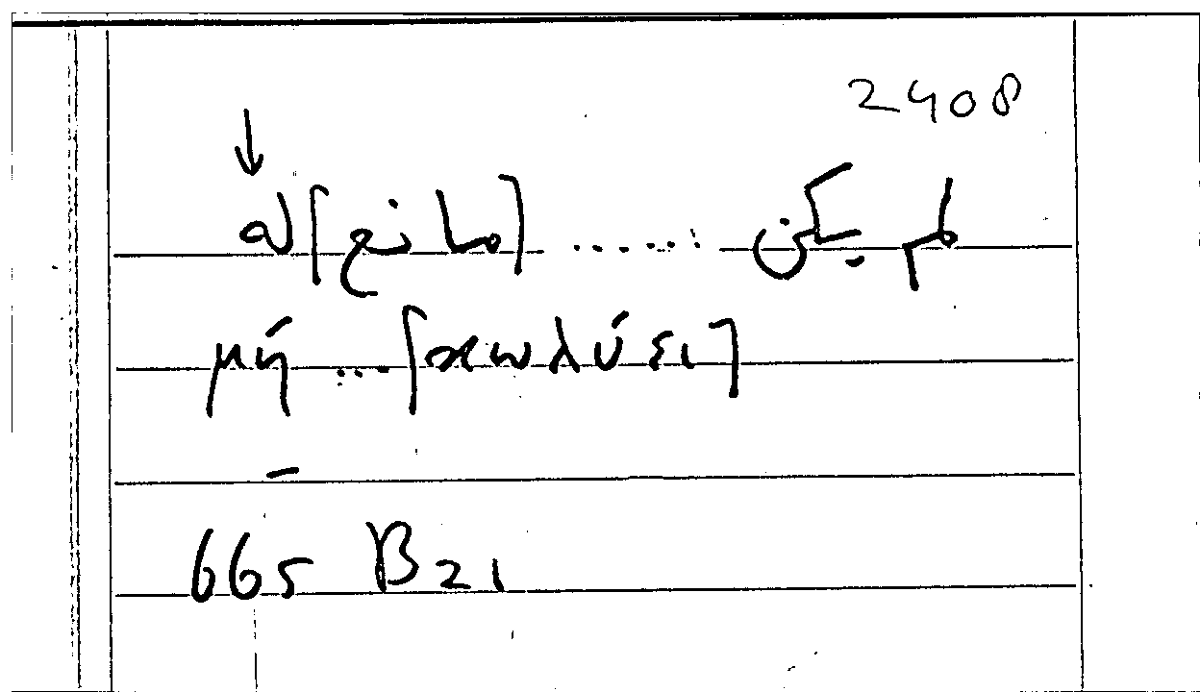 2408
↓
لم يكن ...... [مانع] له
μή .... [κωλύσει]
–
665 B 21